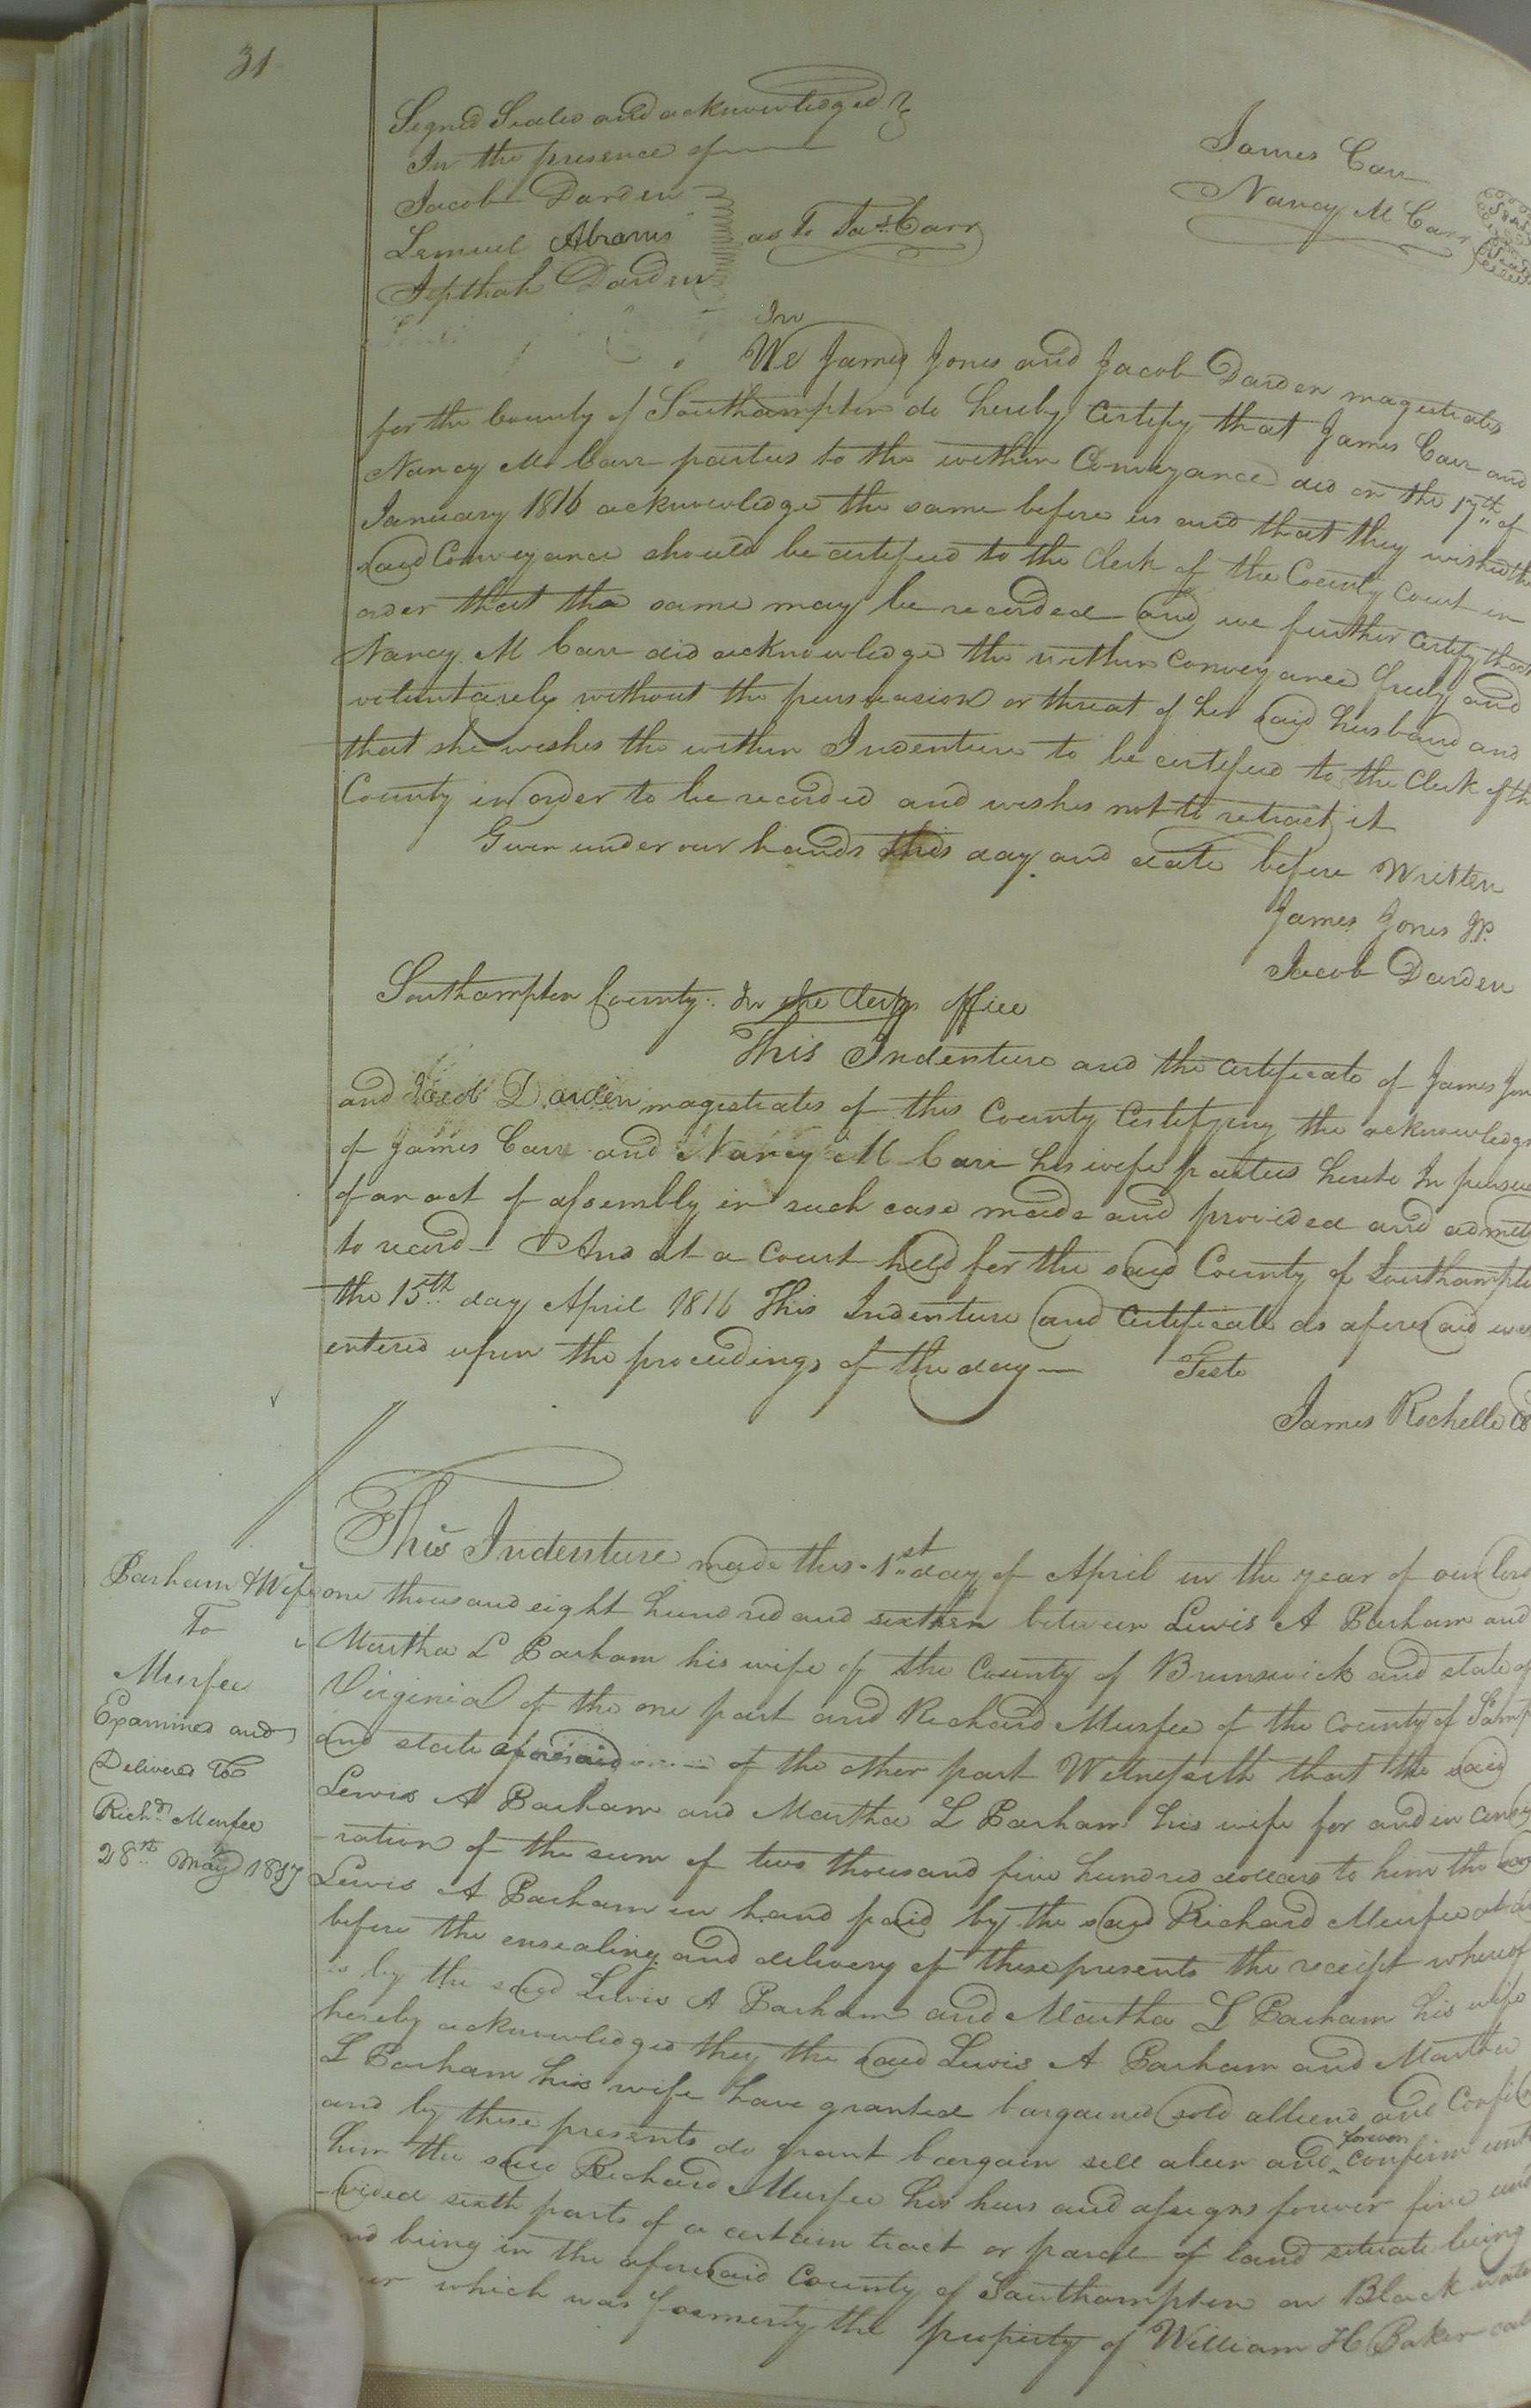 31
Signed Sealed and acknowledged
In the presence of
Jacob Darden
Lemuel Abrams as to Jas. Carr
Jepthah Darden
James Carr
Nancy M Carr
Seal
Seal
We James Jones and Jacob Darden magistrates
for the County of Southampton do hereby Certify that James Carr and
Nancy M Carr parties to the within Conveyance did on the 17th of
January 1816 acknowledge the same before us and that they wished the
said Conveyance should be certified to the Clerk of the County Court in
order that the same may be recorded and we further certify that
Nancy M Carr did acknowledge the within Conveyance freely and
voluntarily without the persuasion or threat of her said husband and
that she wishes the within Indenture to be certified to the Clerk of th
County in order to be recorded and wishes not to retract it
Given under our hands this day and date before Written
James Jones J.P.
Jacob Darden
Southampton County: In the Clerks office
This Indenture and the certificate of James Jon
and Jacob Darden magistrates of this County Certifying the acknowledg
of James Carr and Nancy M Carr his wife parties hereto In pursu
of an act of assembly in such case made and provided and admit
to record - And at a Court held for the said County of Southampto
the 15th day April 1816 This Indenture and Certificate as aforesaid was
entered upon the proceedings of the day — Teste
James Rochelle
This Indenture made this 1st day of April in the year of our lord
one thousand eight hundred and sixteen between Lewis A Parham and
Martha L Parham his wife of the County of Brunswick and state of
Virginia of the one part and Richard Murfee of the County of
and state aforesaid of the other part Witnesseth that the said
Lewis A Parham and Martha L Parham his wife for and in
-ration of the sum of two thousand five hundred dollars to him the said
Lewis A Parham in hand paid by the said Richard Murfee at
before the ensealing and delivery of these presents the receipt whereof
is by the said Lewis A Parham and Martha L Parham his wife
hereby acknowledged they the said Lewis A Parham and Martha
L Parham his wife have granted bargained sold aliend and
and by these presents do grant bargain sell alien and forever confirm unto
him the said Richard Murfee his heirs and assigns forever five und
-vided sixth parts of a certain tract or parcel of land situate lying
and being in the aforesaid County of Southampton on Black wate
which was formerly the property of William H Baker
Parham & Wife
To
Murfee
Examined and
Delivered To
Richd Murfee
28th May 1817